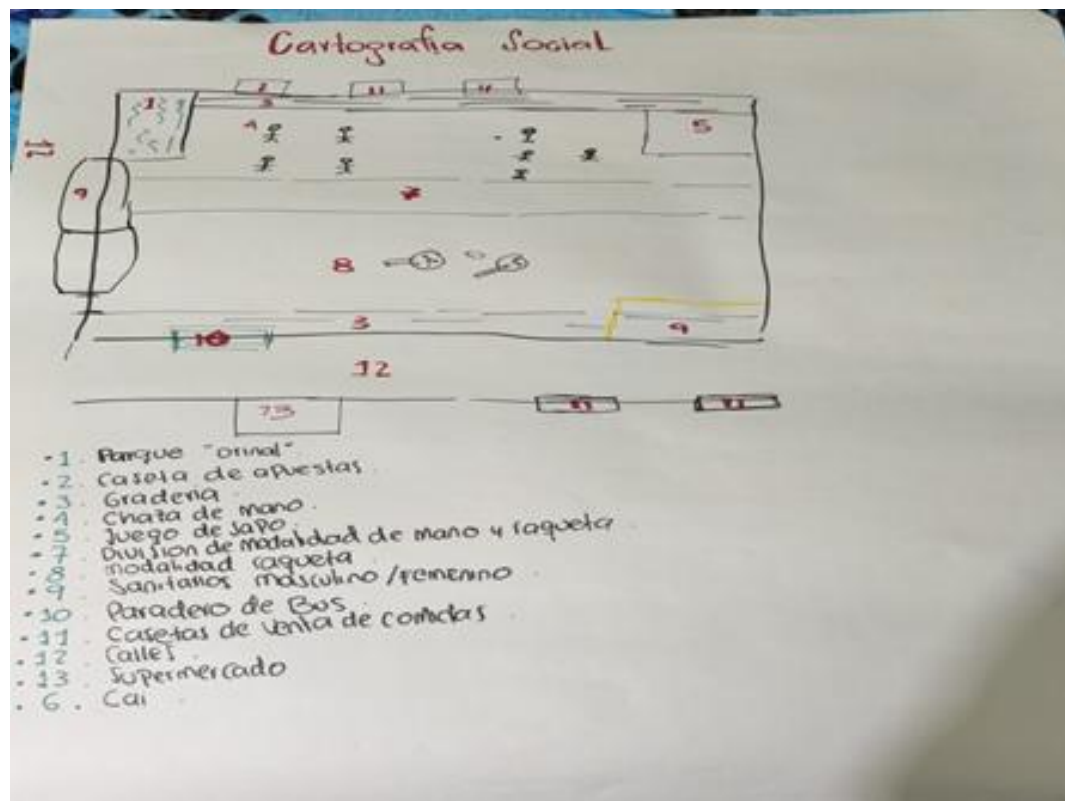 Cartografia Social
2
11
11
1
3
5
12
4
9
7
8
3
9
10
12
13
11
11
1. Parque "orinal"
2. Caseta de apuestas
3. Graderia
4. Chaza de mano.
5. Juego de sapo
7. Division de modalidad de mano y raqueta
8. modalidad raqueta
9. Sanitarios masculino/femenino
10. Paradero de Bus.
11. Casetas de venta de comidas
12. Calles
13. Supermercado
6. Cai